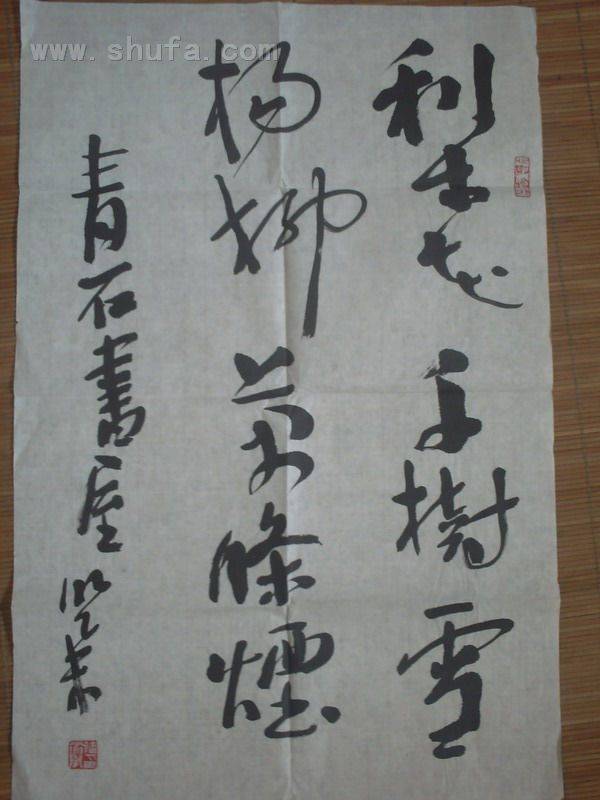 梨花千樹雪
楊柳萬條煙
青石書屋
www.shufa.com